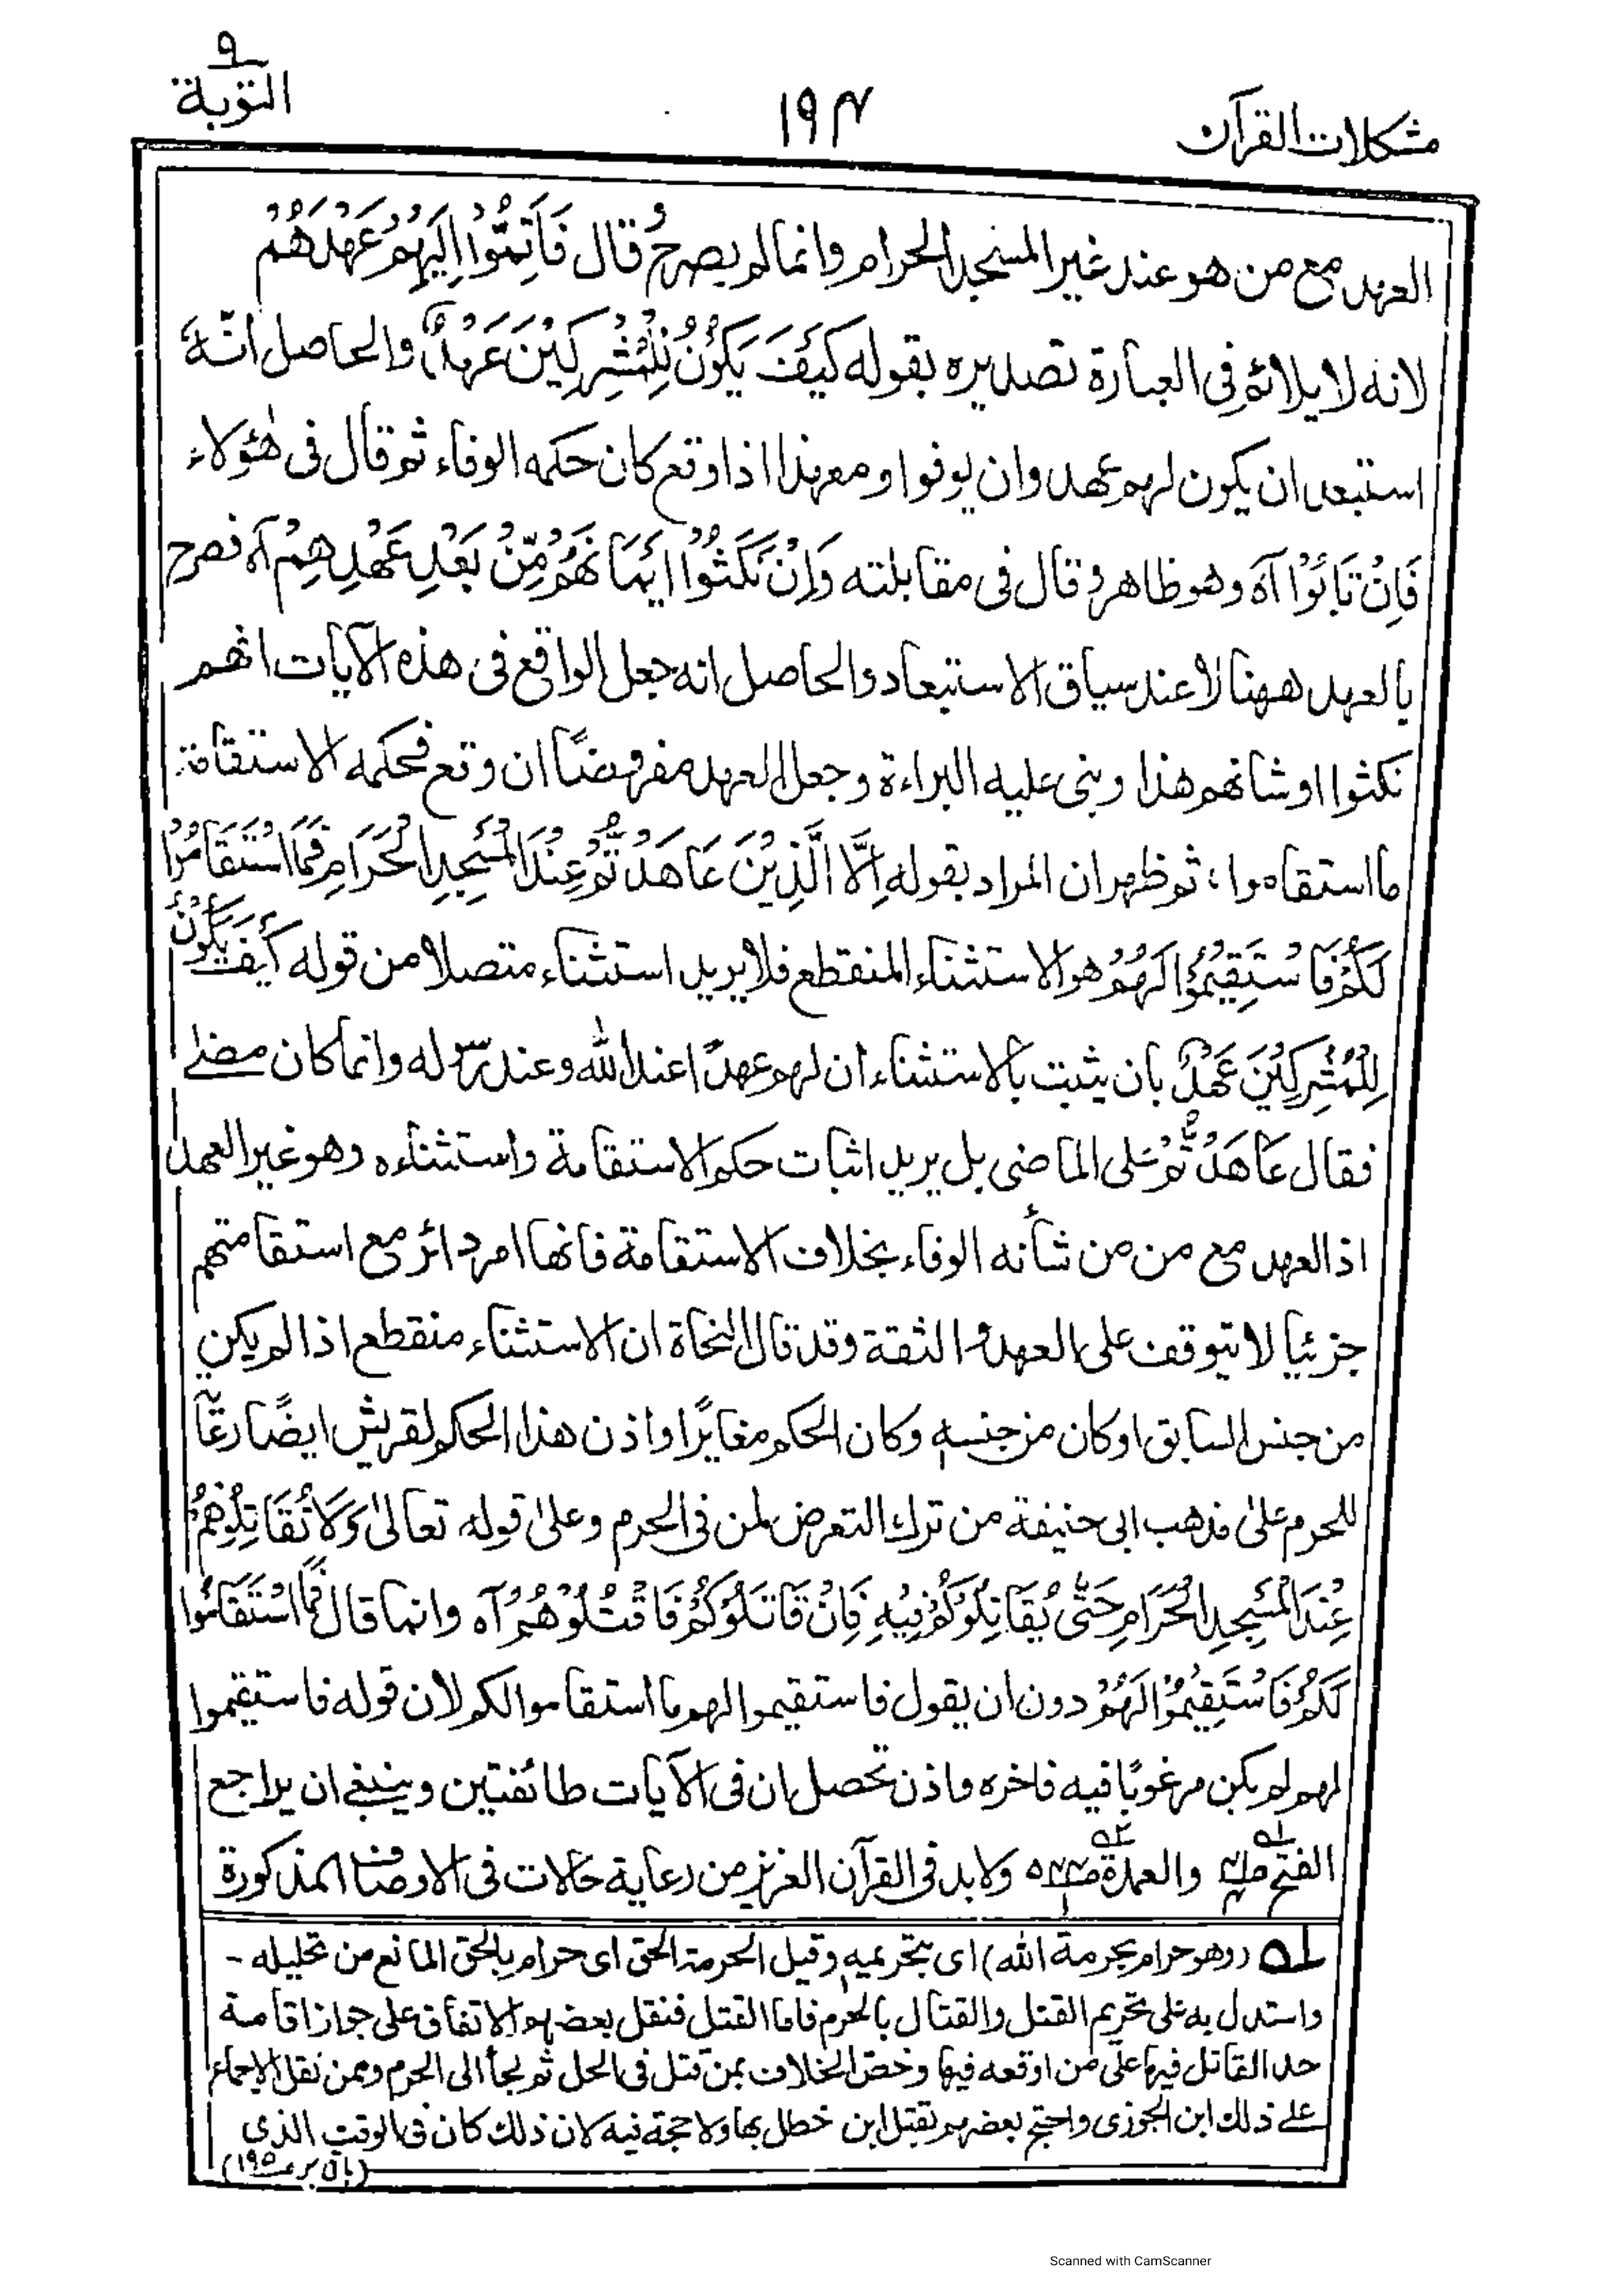 ٩
التوبة
١٩٤
مشكلات القرآن
العهد مع من هو عند غير المسجد الحرام وانما لم يصرح و قال فَاَتِمُّوْا اِلَيْهِمْ عَهْدَهُمْ
لانه لا يلائم فى العبارة تصديره بقوله كَيْفَ يَكُوْنُ لِلْمُشْرِكِيْنَ عَهْدٌ، والحاصل انّهٗ
استبعد ان يكون لهم عهد وان يوفوا ومعهذا اذا وقع كان حكمه الوفاء ثم قال فى هٰؤلاء
فَاِنْ تَابُوْا آه وهو ظاهر وقال فى مقابلته وَاِنْ نَّكَثُوْا اَيْمَانَهُمْ مِّنْ بَعْدِ عَهْدِهِمْ آه فصرح
بالعهد ههنا لا عند سياق الاستبعاد والحاصل انه جعل الواقع فى هذه الآيات انهم
نكثوا او شانهم هذا وبنى عليه البراءة وجعل العهد مفروضًا ان وقع فحكمه الاستقامة
ما استقاموا، ثم ظهر ان المراد بقوله اِلَّا الَّذِيْنَ عَاهَدْتُّمْ عِنْدَ الْمَسْجِدِ الْحَرَامِ فَمَا اسْتَقَامُوْا
لَكُمْ فَاسْتَقِيْمُوْا لَهُمْ هو الاستثناء المنقطع فلا يريد استثناء متصلا من قوله كَيْفَ يَكُوْنُ
لِلْمُشْرِكِيْنَ عَهْدٌ بان يثبت بالاستثناء ان لهم عهدًا عند الله وعند رسوله وانما كان مضٰے
فقال عَاهَدْتُّمْ على الماضى بل يريد اثبات حكم الاستقامة واستثناءه وهو غير العهد
اذ العهد مع من من شأنه الوفاء بخلاف الاستقامة فانها امر دائر مع استقامتهم
جزئيا لا تتوقف على العهد والثقة وقد قال النحاة ان الاستثناء منقطع اذا لم يكن
من جنس السابق او كان من جنسه وكان الحكم مغايرًا واذن هذا الحكم لقريش ايضًا رعايةً
للحرم علىٰ مذهب ابى حنيفة من ترك التعرض لمن فى الحرم وعلىٰ قوله تعالىٰ وَلَا تُقَاتِلُوْهُمْ
عِنْدَ الْمَسْجِدِ الْحَرَامِ حَتّٰى يُقَاتِلُوْكُمْ فِيْهِ فَاِنْ قَاتَلُوْكُمْ فَاقْتُلُوْهُمْ آه وانما قال فَمَا اسْتَقَامُوْا
لَكُمْ فَاسْتَقِيْمُوْا لَهُمْ دون ان يقول فاستقيموا لهم ما استقاموا لكم لان قوله فاستقيموا
لهم لم يكن مرغوبًا فيه فاخره واذن تحصل ان فى الآيات طائفتين وينبغى ان يراجع
الفتح والعمدة ولابد فى القرآن العزيز من رعاية حالات فى الاوصاف المذكورة
لـه (وهو حرام بحرمة الله) اى بتحريمه وقيل الحرمة الحق اى حرام بالحق المانع من تحليله -
واستدل به على تحريم القتل والقتال بالحرم فاما القتل فنقل بعضهم الاتفاق على جواز اقامة
حد القاتل فيها على من اوقعه فيها وخص الخلاف بمن قتل فى الحل ثم لجأ الى الحرم وممن نقل الاجماع
علے ذلك ابن الجوزى واحتج بعضهم بقتل ابن خطل بها ولا حجة فيه لان ذلك كان فى الوقت الذى
(باقى بر ص ١٩٥)
Scanned with CamScanner